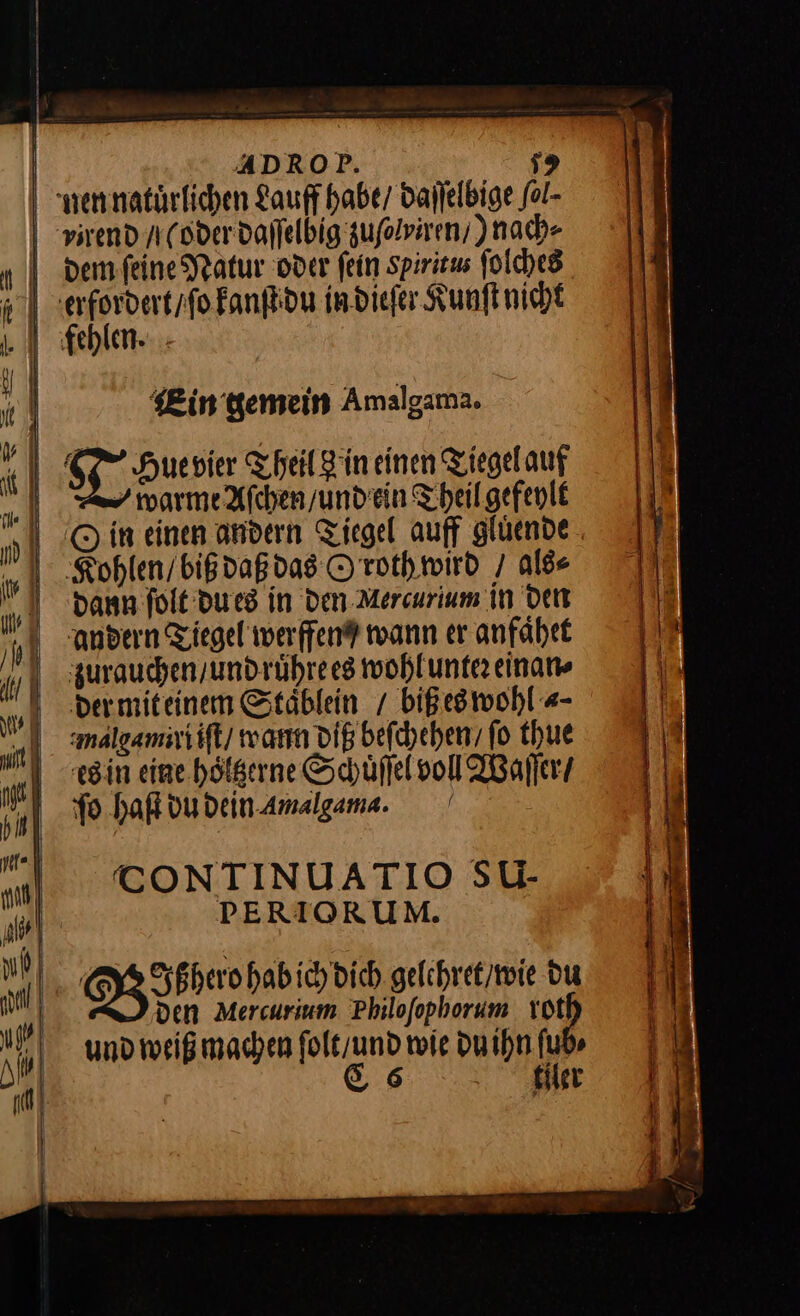 ADROP. 59
nen natuͤrlichen Lauff habe/ daſſelbige ſol-
virend /(oder daſſelbig zuſolviren/) nach-
dem ſeine Natur oder ſein Spiritus ſolches
erfordert/ſo kanſt du in dieſer Kunſt nicht
fehlen.
Ein gemein Amalgama.
THue vier Theil ☿ in einen Tiegel auf
warme Aſchen/und ein Theil gefeylt
☉ in einen andern Tiegel auff gluͤende
Kohlen/biß daß das ☉ roth wird / als-
dann ſolt du es in den Mercurium in den
andern Tiegel werffen/ wann er anfaͤhet
zurauchen/und ruͤhre es wohl unter einan-
der mit einem Staͤblein / biß es wohl a-
malgamirt iſt/ wann diß beſchehen/ ſo thue
es in eine hoͤltzerne Schuͤſſel voll Waſſer/
ſo haſt du dein Amalgama.
CONTINUATIO SU-
PERIORUM.
BIßhero hab ich dich gelehret/wie du
den Mercurium Philoſophorum roth
und weiß machen ſolt/und wie du ihn ſub-
C 6 tiler